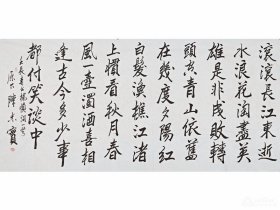 滚滚長江東逝
水浪花淘盡英
雄是非成敗轉
頭空青山依舊
在幾度夕陽紅
白髮漁樵江渚
上慣看秋月春
風一壺濁酒喜相
逢古今多少事
都付笑談中